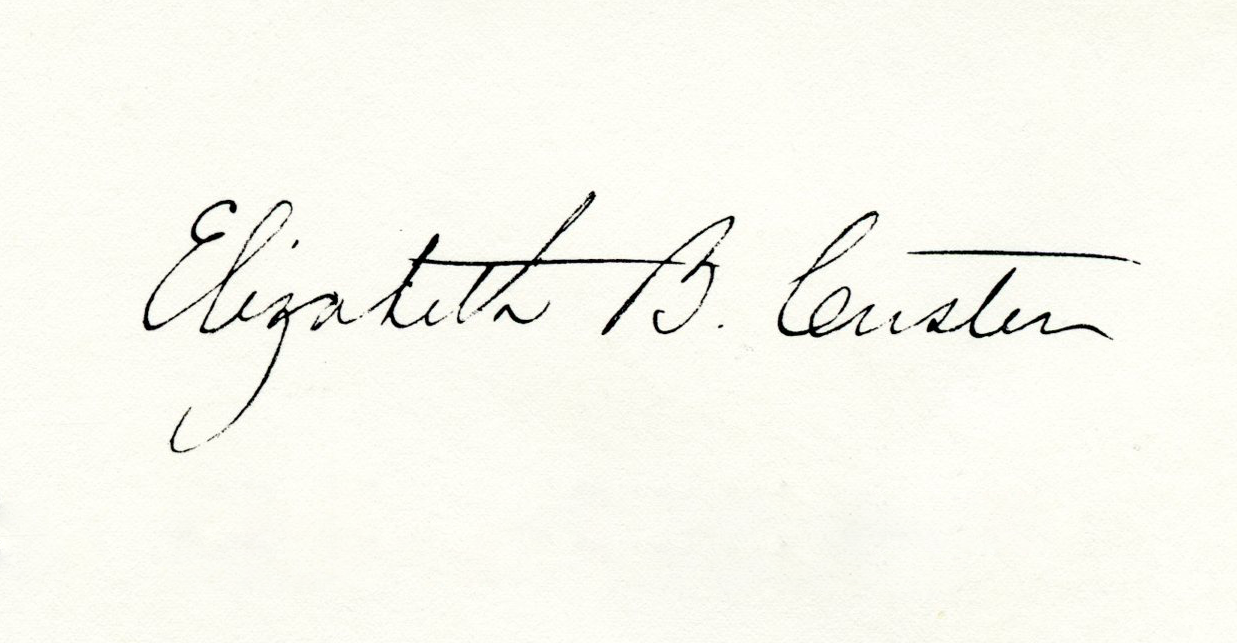 Elizabeth B. Custer